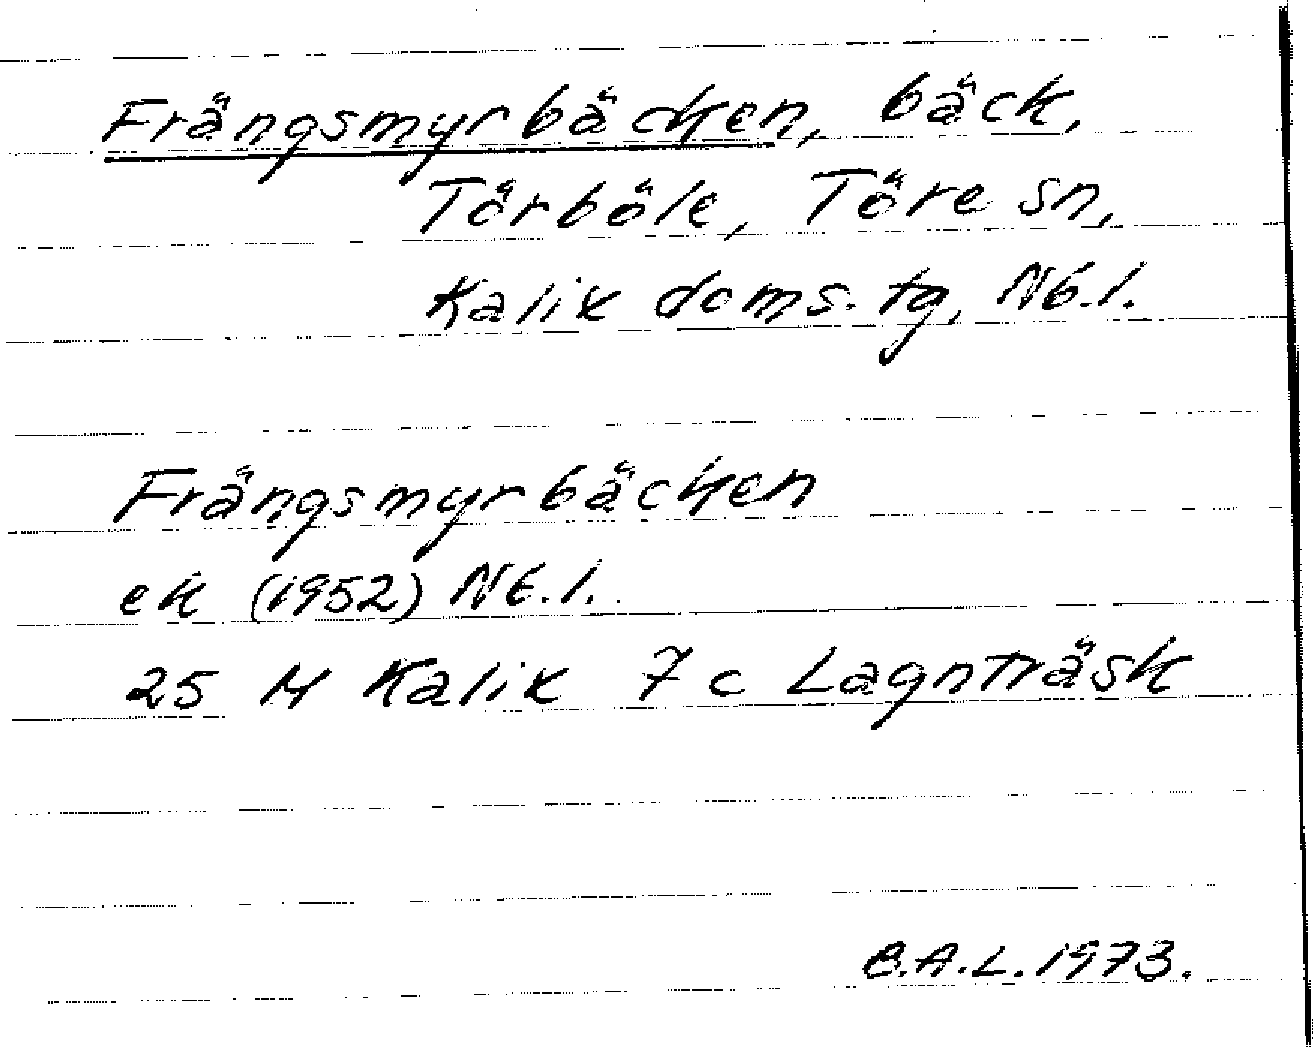 Frängsmyrbäcken, bäck,
Törböle, Töre sn,
Kalix doms. tg, Nb. l.
Frängsmyrbäcken
ek (1952) Nb. l.
25 M Kalix 7 c Lagnträsk
C.A.L. 1973.